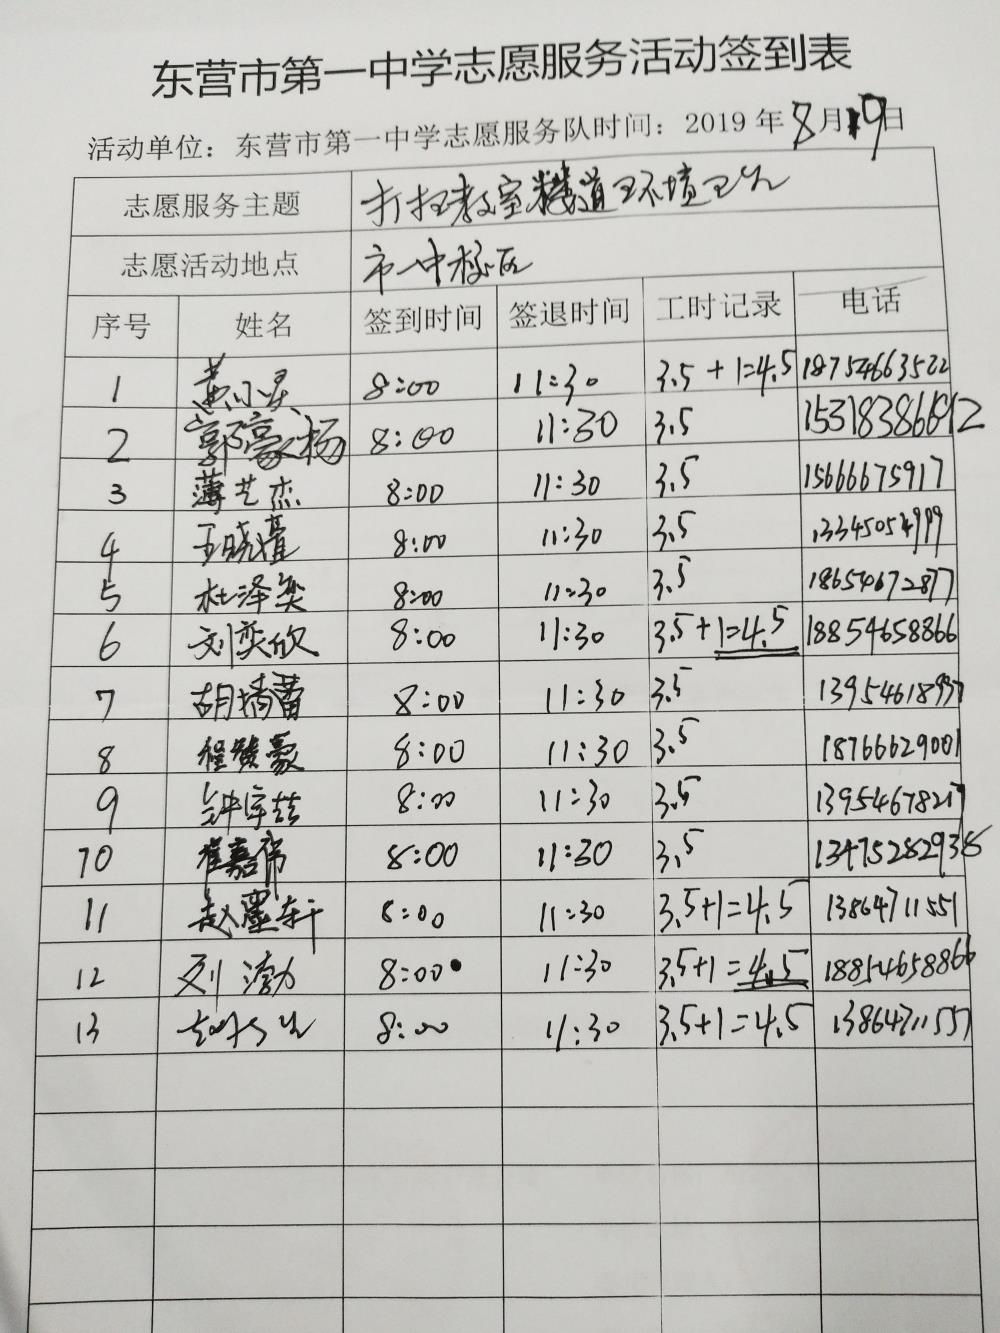 东营市第一中学志愿服务活动签到表
活动单位：东营市第一中学志愿服务队时间：2019年8月19日
志愿服务主题 打扫教室楼道卫环境卫生
志愿活动地点 市一中校区
序号 姓名 签到时间 签退时间 工时记录 电话
1 8:00 11:30 3.5+1=4.5 18754663522
2 郭豪杨 8:00 11:30 3.5
3 薄艺杰 8:00 11:30 3.5 15666675917
4 8:00 11:30 3.5 13345054999
5 杜泽奕 8:00 11:30 3.5 18654672877
6 刘奕欣 8:00 11:30 3.5+1=4.5 18854658866
7 胡靖蕾 8:00 11:30 3.5
8 程赞豪 8:00 11:30 3.5 18766629001
9 8:00 11:30 3.5
10 崔嘉伟 8:00 11:30 3.5
11 赵墨轩 8:00 11:30 3.5+1=4.5 13864711551
12 刘渤 8:00 11:30 3.5+1=4.5 18854658866
13 8:00 11:30 3.5+1=4.5 13864711551